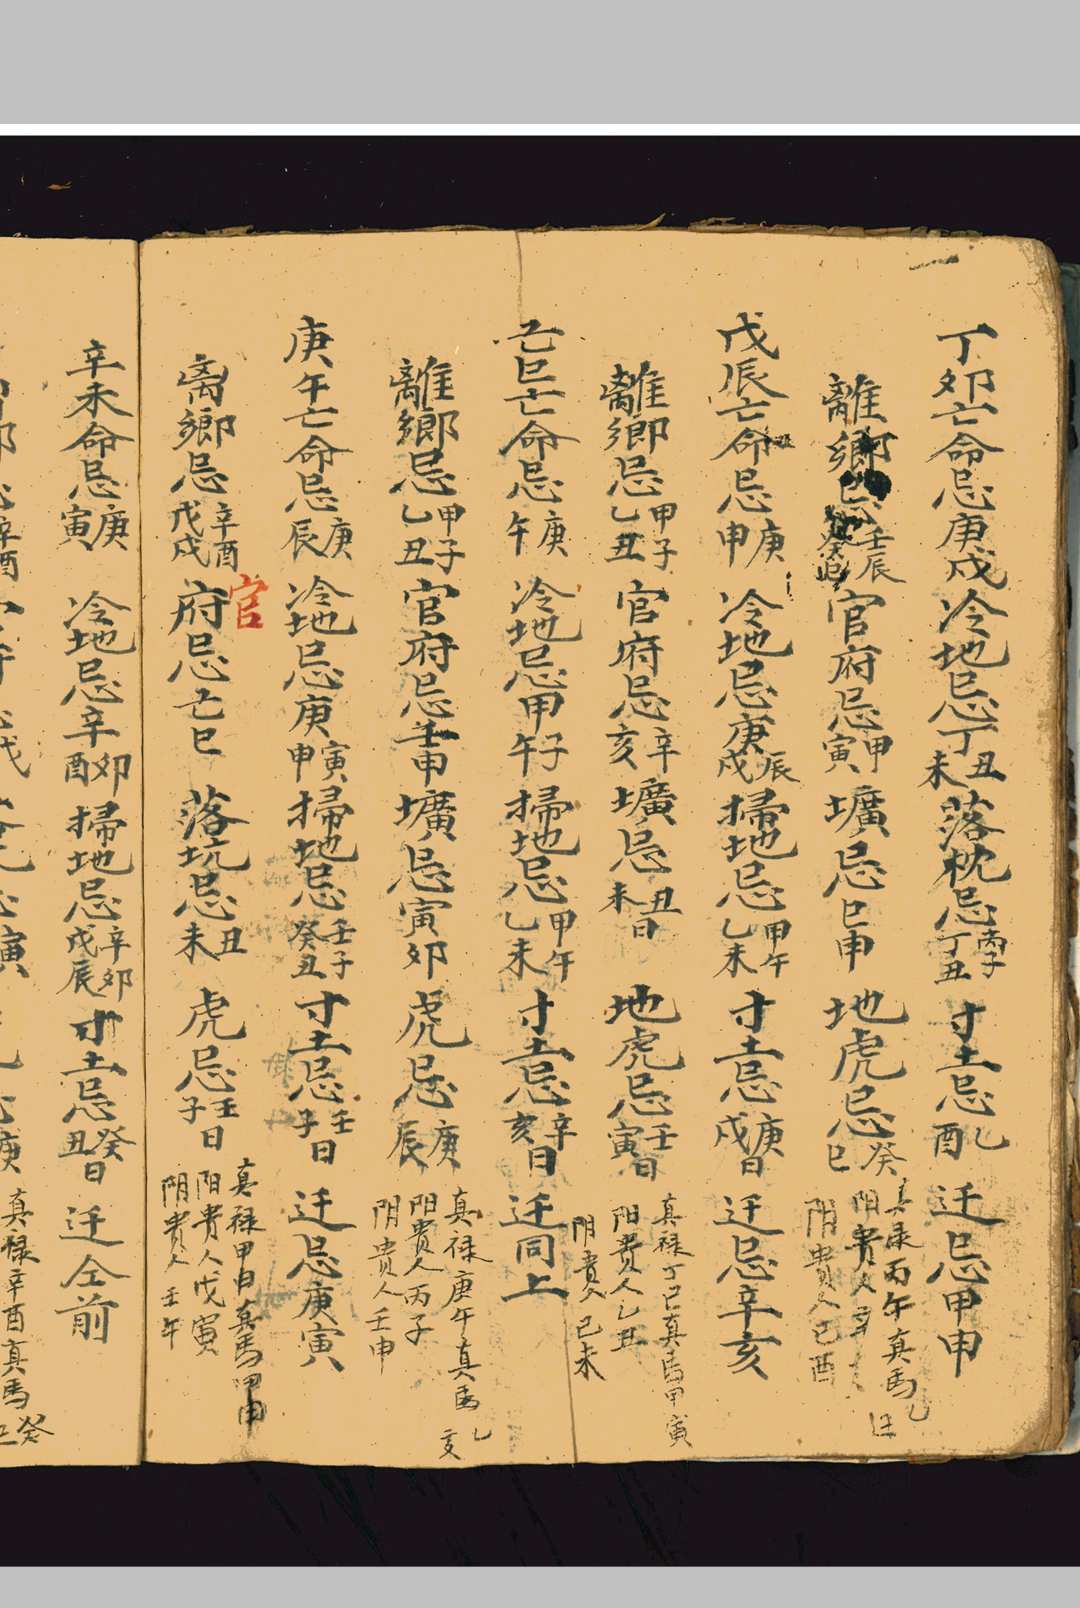 丁卯亡命忌庚戌冷地忌丁丑未落枕忌丙子丁丑寸土忌乙酉迁忌甲申
離鄉忌壬辰癸巳官府忌甲寅壙忌巳申地虎忌癸巳
真禄丙午真馬乙
阳貴人辛
阴貴人己酉
戊辰亡命忌庚申冷地忌庚辰戌掃地忌甲午乙未寸土忌庚戌日迁忌辛亥
離鄉忌甲子乙丑官府忌辛亥壙忌丑未日地虎忌壬寅日
真禄丁巳真馬甲寅
阳貴人乙丑
阴貴人己未
己巳亡命忌庚午冷地忌甲子午掃地忌甲午乙未寸土忌辛亥日迁同上
離鄉忌甲子乙丑官府忌壬申壙忌寅卯虎忌庚辰
真禄庚午真馬乙亥
阳貴人丙子
阴貴人壬申
庚午亡命忌庚辰冷地忌庚寅申掃地忌壬子癸丑寸土忌壬子日迁忌庚寅
离鄉忌辛酉戊戌官府忌亡巳落坑忌丑未虎忌壬子日
真禄甲申真馬甲申
阳貴人戊寅
阴貴人壬午
辛未命忌庚寅冷地忌辛卯酉掃地忌辛卯戊辰寸土忌癸丑日迁仝前
真禄辛酉真馬癸